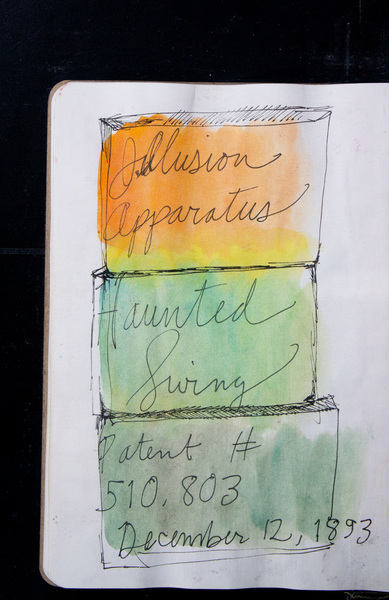 Illusion
Apparatus
Haunted
Swing
Patent #
510,803
December 12, 1893